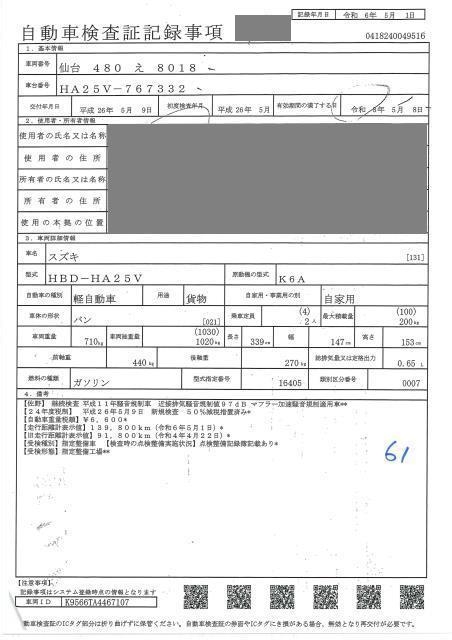 記録年月日 令和 6年 5月 1日
自動車検査証記録事項
0418240049516
1. 基本情報
車両番号 仙台 480 え 8018
車台番号 HA25V-767332
交付年月日 平成 26年 5月 9日 初度検査年月 平成 26年 5月 有効期間の満了する日 令和 8年 5月 8日
2. 使用者・所有者情報
使用者の氏名又は名称
使用者の住所
所有者の氏名又は名称
所有者の住所
使用の本拠の位置
3. 車両詳細情報
車名 スズキ [131]
型式 HBD-HA25V 原動機の型式 K6A
自動車の種別 軽自動車 用途 貨物 自家用・事業用の別 自家用
車体の形状 バン [021] 乗車定員 (4) 2人 最大積載量 (100) 200kg
車両重量 710kg 車両総重量 (1030) 1020kg 長さ 339cm 幅 147cm 高さ 153cm
前軸重 440kg 後軸重 270kg 総排気量又は定格出力 0.65 L
燃料の種類 ガソリン 型式指定番号 16405 類別区分番号 0007
4. 備考
【佐野】 継続検査 平成11年騒音規制車 近接排気騒音規制値97dB マフラー加速騒音規制適用車**
【24年度税制】 平成26年5月9日 新規検査 50%減税措置済み*
【自動車重量税額】 ¥6,600*
【走行距離計表示値】 139,800km (令和6年5月1日)*
【旧走行距離計表示値】 91,800km (令和4年4月22日)*
【受検種別】 指定整備車 【検査時の点検整備実施状況】 点検整備記録簿記載あり*
【受検形態】 指定整備工場**
61
【注意事項】
記録事項はシステム登録時点の情報となります
車両ID K9566TA4467107
動車検査証のICタグ部分は折り曲げずに保管ください。自動車検査証の券面やICタグにき損がある場合、無効となり再交付が必要です。